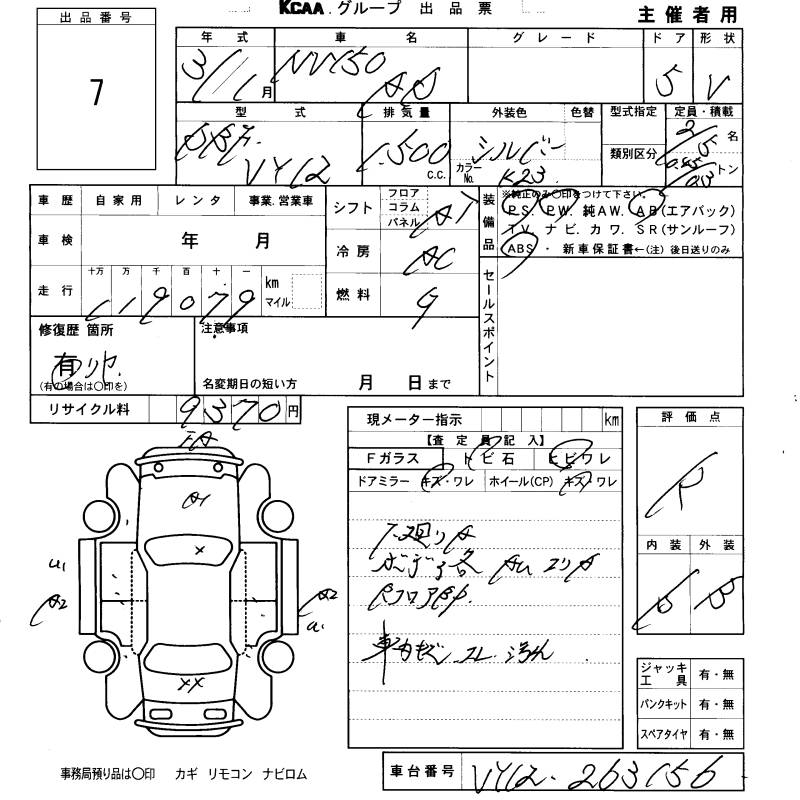 KCAA.グループ 出品票
主催者用
出品番号
7
年式 車名 グレード ドア 形状
31/1月 NV150 AD 5 V
型式 排気量 外装色 色替 型式指定 定員・積載
DBF. VY12 1,500 C.C. シルバー カラーNo. K23 類別区分 2/5名 0.45/0.3トン
車歴 自家用 レンタ 事業.営業車
車検 年 月
走行 十万 万 千 百 十 一 km マイル
119079
シフト フロア コラム パネル AT
冷房 AC
燃料 G
装備品 ※純正のみ〇印をつけて下さい。
PS. PW. 純AW. AB(エアバック)
TV. ナビ. カワ. SR(サンルーフ)
ABS ・ 新車保証書←(注) 後日送りのみ
セールスポイント
修復歴 箇所
有 リヤ.
(有の場合は〇印を)
注意事項
名変期日の短い方 月 日まで
リサイクル料 9370円
現メーター指示 km
【査定員記入】
Fガラス トビ石 ヒビワレ
ドアミラー キズ・ワレ ホイール(CP) キズ・ワレ
下廻りA
ボデー各 AU エリA
RフロアBP.
車内キズ コレ 汚れ
評価点
R
内装 外装
D B
ジャッキ工具 有・無
パンクキット 有・無
スペアタイヤ 有・無
FA
A1
×
U1
A2
A2
U1
××
事務局預り品は〇印 カギ リモコン ナビロム
車台番号 VY12-263156